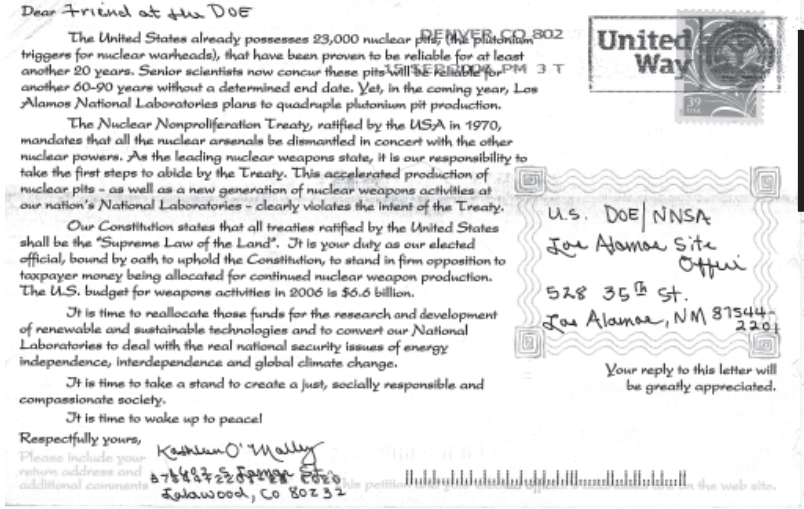 Dear Friend at the DOE
The United States already possesses 23,000 nuclear pits, (the plutonium
triggers for nuclear warheads), that have been proven to be reliable for at least
another 20 years. Senior scientists now concur these pits will be reliable for
another 60-90 years without a determined end date. Yet, in the coming year, Los
Alamos National Laboratories plans to quadruple plutonium pit production.
The Nuclear Nonproliferation Treaty, ratified by the USA in 1970,
mandates that all the nuclear arsenals be dismantled in concert with the other
nuclear powers. As the leading nuclear weapons state, it is our responsibility to
take the first steps to abide by the Treaty. This accelerated production of
nuclear pits - as well as a new generation of nuclear weapons activities at
our nation's National Laboratories - clearly violates the intent of the Treaty.
Our Constitution states that all treaties ratified by the United States
shall be the "Supreme Law of the Land". It is your duty as our elected
official, bound by oath to uphold the Constitution, to stand in firm opposition to
taxpayer money being allocated for continued nuclear weapon production.
The U.S. budget for weapons activities in 2006 is $6.6 billion.
It is time to reallocate those funds for the research and development
of renewable and sustainable technologies and to convert our National
Laboratories to deal with the real national security issues of energy
independence, interdependence and global climate change.
It is time to take a stand to create a just, socially responsible and
compassionate society.
It is time to wake up to peace!
Respectfully yours,
Kathleen O'Malley
S. Lamar St.
Lakewood, CO 80232
Please include your
return address and
additional comments
This petition
on the web site.
DENVER CO 802
PM 3 T
United
Way
39
USA
U.S. DOE/NNSA
Los Alamos Site
Office
528 35th St.
Los Alamos, NM 87544-
2201
Your reply to this letter will
be greatly appreciated.